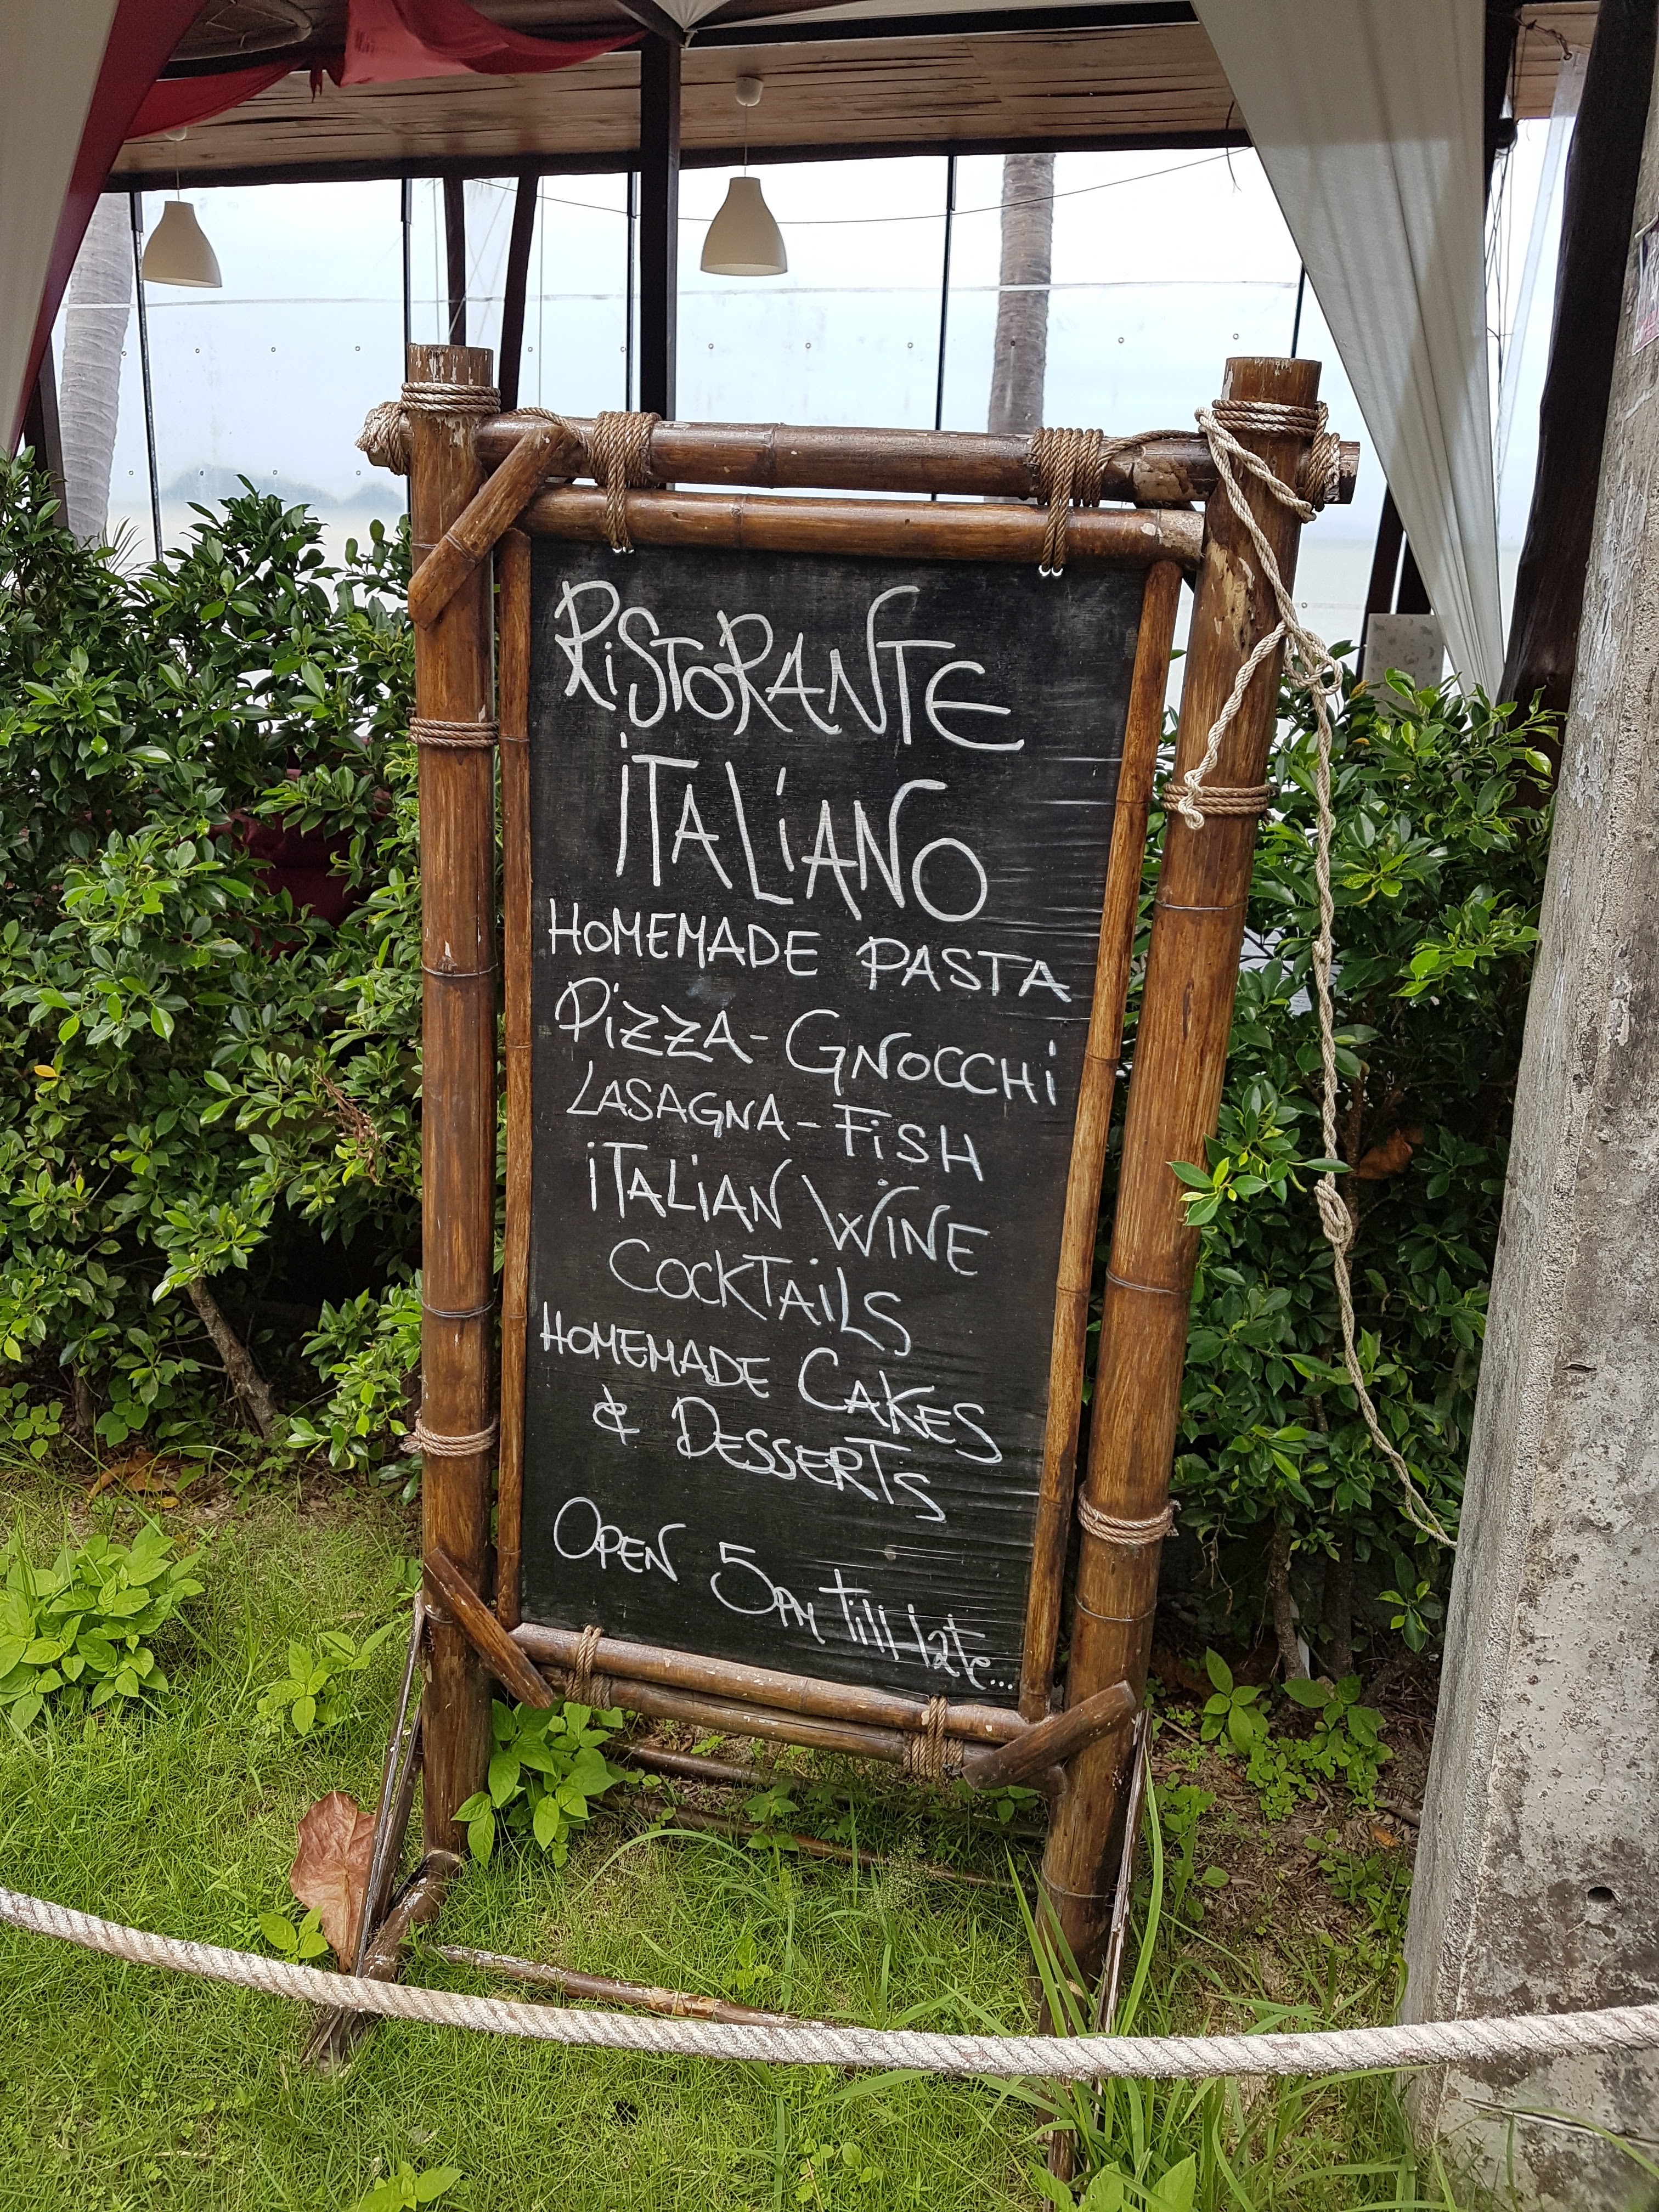 RiSTORANTE
iTALiANO
HOMEMADE PASTA
PiZZA - GNOCCHi
LASAGNA - FiSH
iTALiAN WiNE
COCKTAiLS
HOMEMADE CAKES
& DESSERTS
OPEN 5PM Till late...